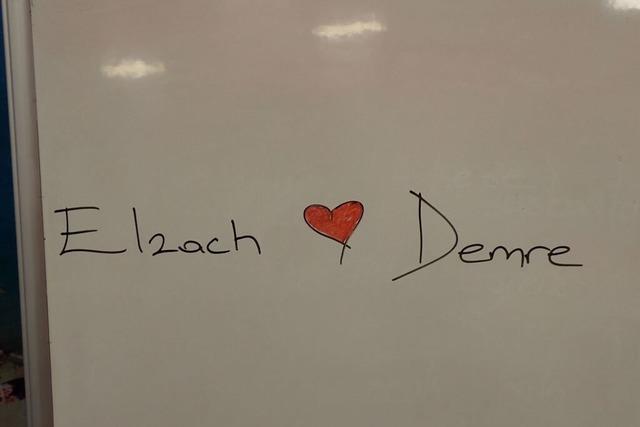 Elzach ❤ Demre